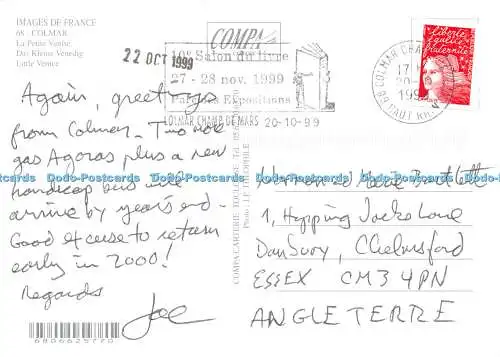 IMAGES DE FRANCE
68 - COLMAR
La Petite Venise
Das Kleine Venedig
Little Venice
22 OCT 1999
COMPA
10e Salon du livre
27 - 28 nov. 1999
Parc des Expositions
COLMAR CHAMP DE MARS 20-10-99
68 COLMAR CHA
17 H
20-
199
HAUT RHIN
Liberté
Égalité
Fraternité
Again, greetings
from Colmar. Two more
gas Agoras plus a new
handicap bus will
arrive by year's end.
Good excuse to return
early in 2000!
Regards
Joe
COMPA CARTERIE TOULOUSE Tél.
Photo : J.F.
Norman & Marie Bartlett
1, Hopping Jacks Lane
Danbury, Chelmsford
ESSEX CM3 4PN
ANGLETERRE
6806625770
Dodo-Postcards Dodo-Postcards Dodo-Postcards Dodo-Postcards